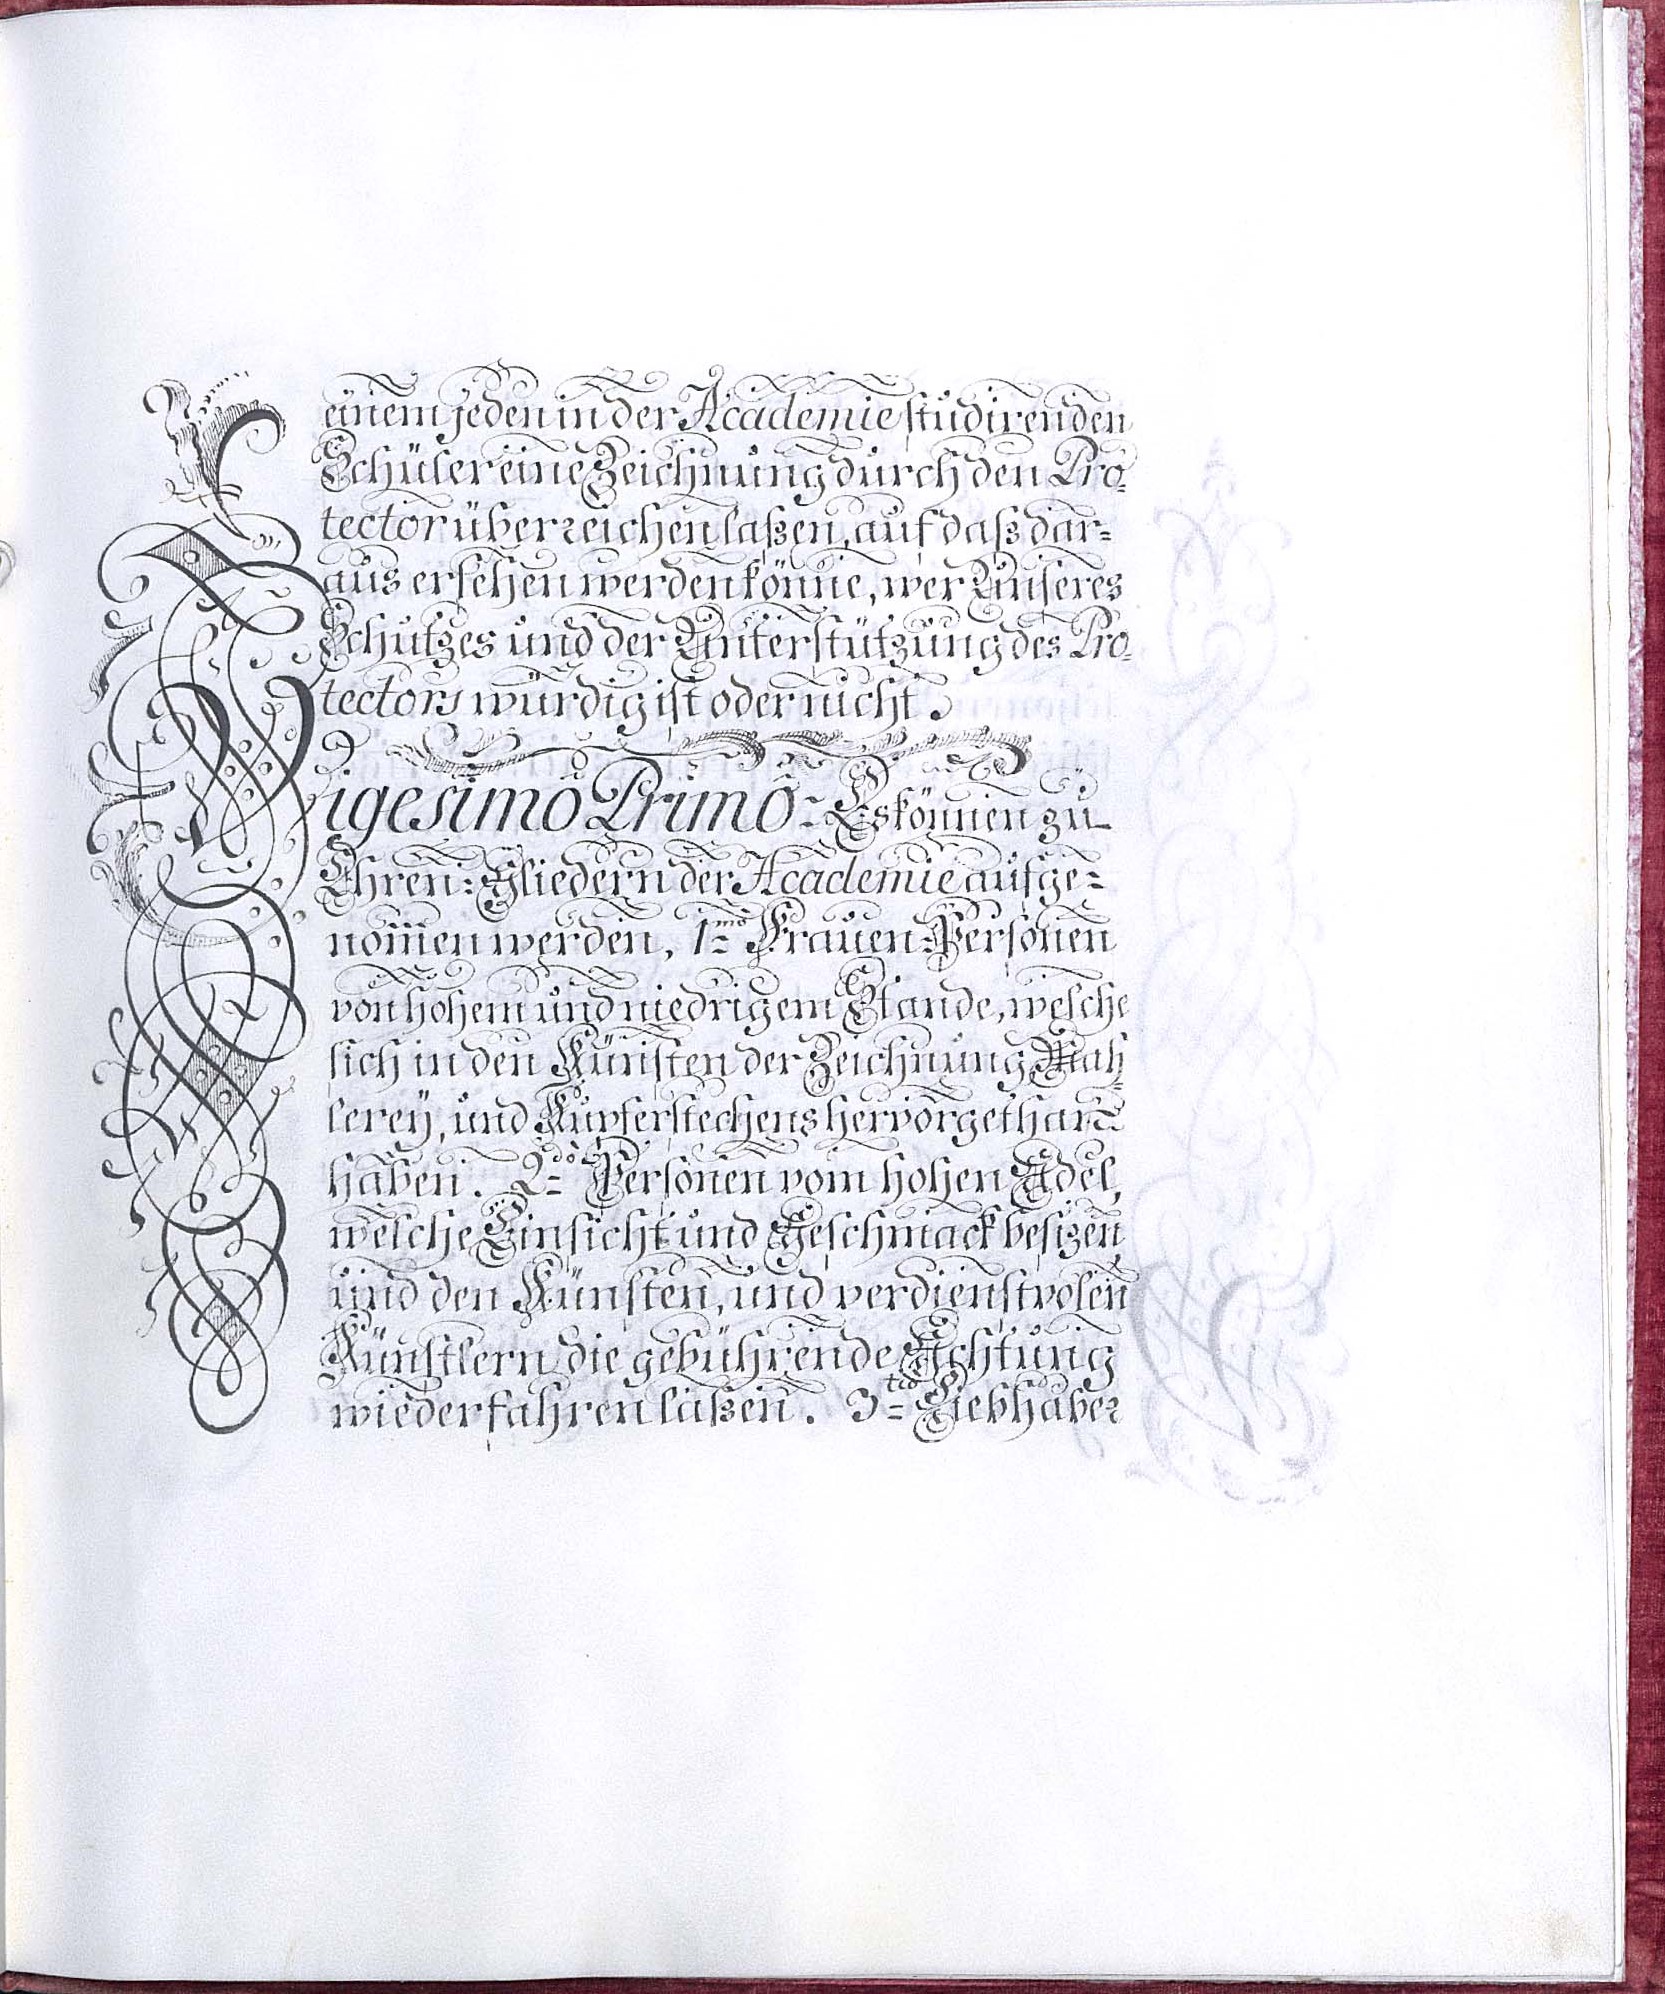 einem jeden in der Academie studirenden
Schüler eine Zeichnung durch den Pro=
tector überreichen laßen, auf daß dar=
aus ersehen werden könne, wer Unseres
Schutzes und der Unterstützung des Pro=
tectors würdig ist oder nicht.
Vigesimo Primo = Es können zu
Ehren=Gliedern der Academie aufge=
nom̅en werden, 1=mo Frauen=Personen
von hohem und niedrigem Stande, welche
sich in den Künsten der Zeichnung Mah=
lerey, und Kupferstechens hervorgethan
haben. 2=do Personen vom hohen Adel,
welche Einsicht und Geschmack besizen
und den Künsten, und verdienstvolen
Künstlern die gebührende Achtung
wiederfahren laßen. 3=tio Liebhaber